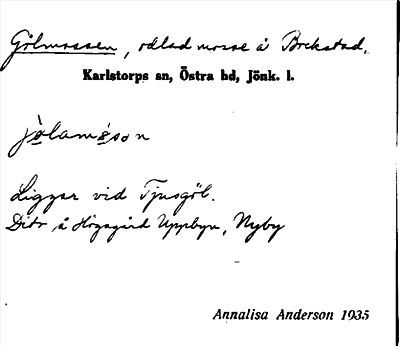 Gölmossen, odlad mosse å Brekstad.
Karlstorps sn, Östra hd, Jönk. l.
jø̀lamǿsɔn
Liggar vid Tjusgöl.
Dito å Högagärd Uppbyn, Nyby
Annalisa Anderson 1935